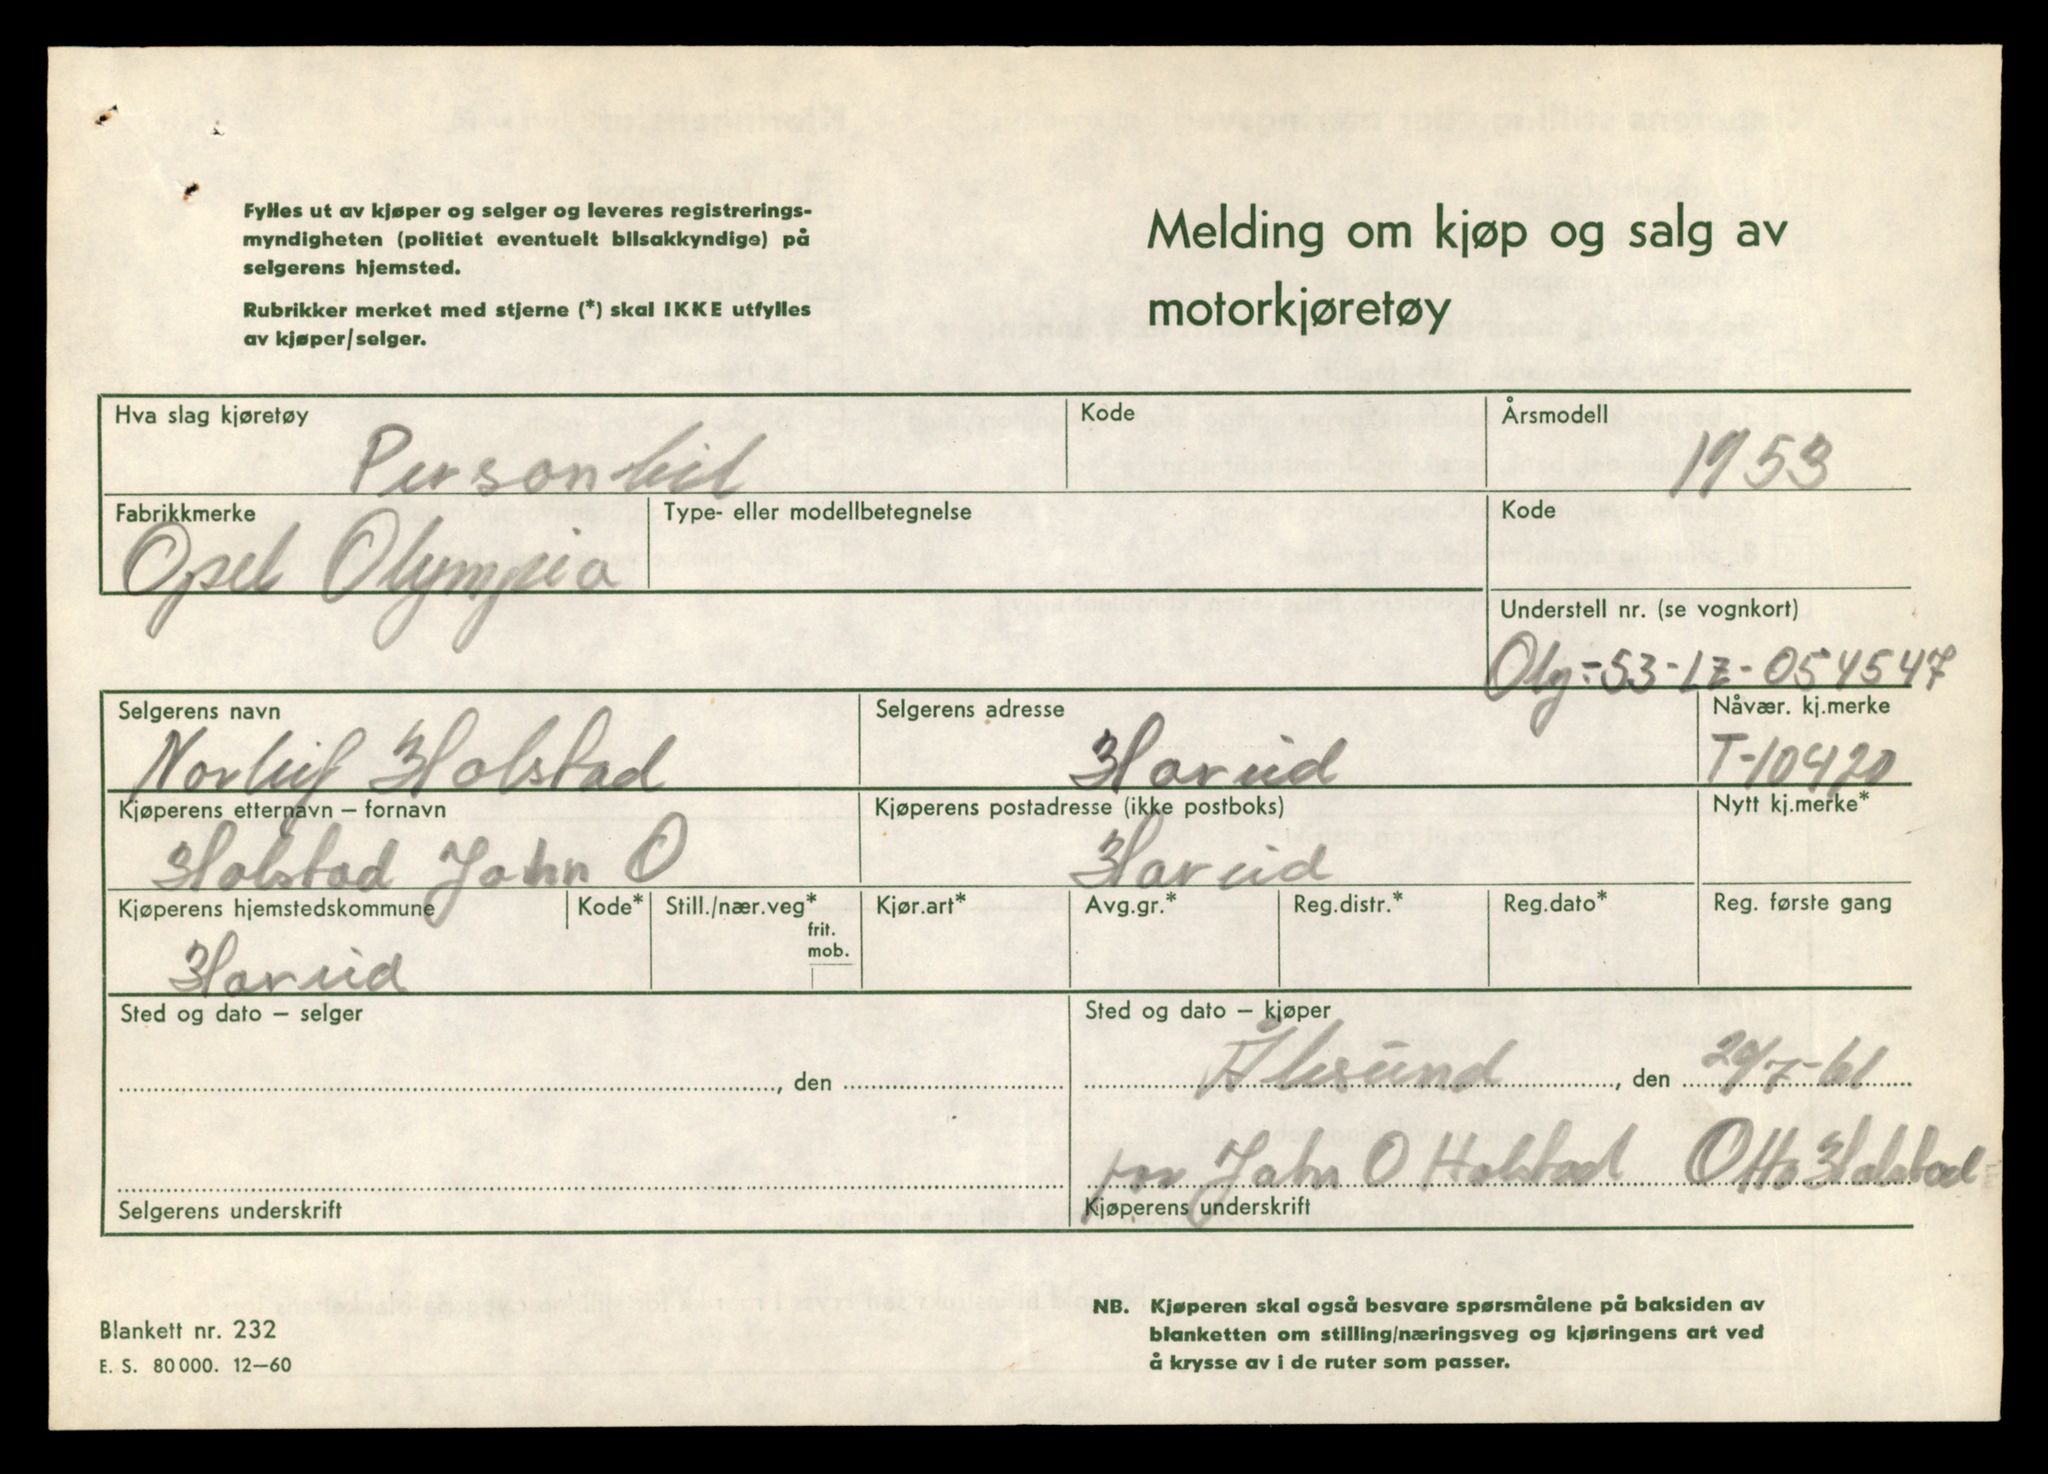 Fylles ut av kjøper og selger og leveres registrerings-
myndigheten (politiet eventuelt bilsakkyndige) på
selgerens hjemsted.
Rubrikker merket med stjerne (*) skal IKKE utfylles
av kjøper/selger.
Melding om kjøp og salg av
motorkjøretøy
Hva slag kjøretøy
Personbil
Kode
Årsmodell
1953
Fabrikkmerke
Opel Olympia
Type- eller modellbetegnelse
Kode
Understell nr. (se vognkort)
Oly-53-LZ-054547
Selgerens navn
Norleif Holstad
Selgerens adresse
Harøid
Nåvær. kj.merke
T-10420
Kjøperens etternavn – fornavn
Holstad John O
Kjøperens postadresse (ikke postboks)
Harøid
Nytt kj.merke*
Kjøperens hjemstedskommune
Harøid
Kode*
Still./nær.veg*
frit.
mob.
Kjør.art*
Avg.gr.*
Reg.distr.*
Reg.dato*
Reg. første gang
Sted og dato – selger
, den
Selgerens underskrift
Sted og dato – kjøper
Ålesund, den 29/7-61
for John O Holstad Otto Holstad
Kjøperens underskrift
Blankett nr. 232
E. S. 80 000. 12–60
NB. Kjøperen skal også besvare spørsmålene på baksiden av
blanketten om stilling/næringsveg og kjøringens art ved
å krysse av i de ruter som passer.